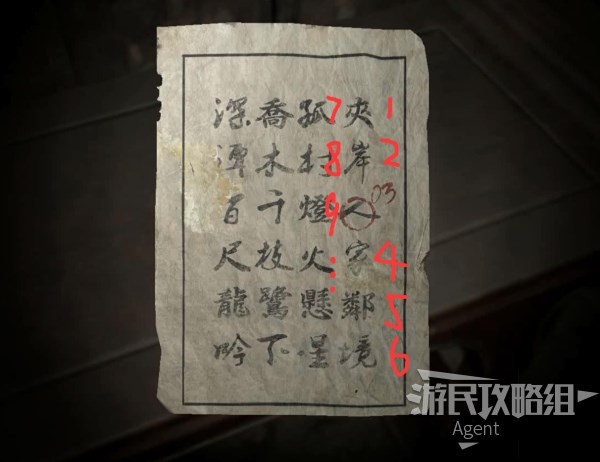 夾岸人家鄰境
孤村燈火懸星
喬木千枝鷺下
深潭百尺龍吟
03
1
2
4
5
6
7
8
9
游民攻略组
Agent